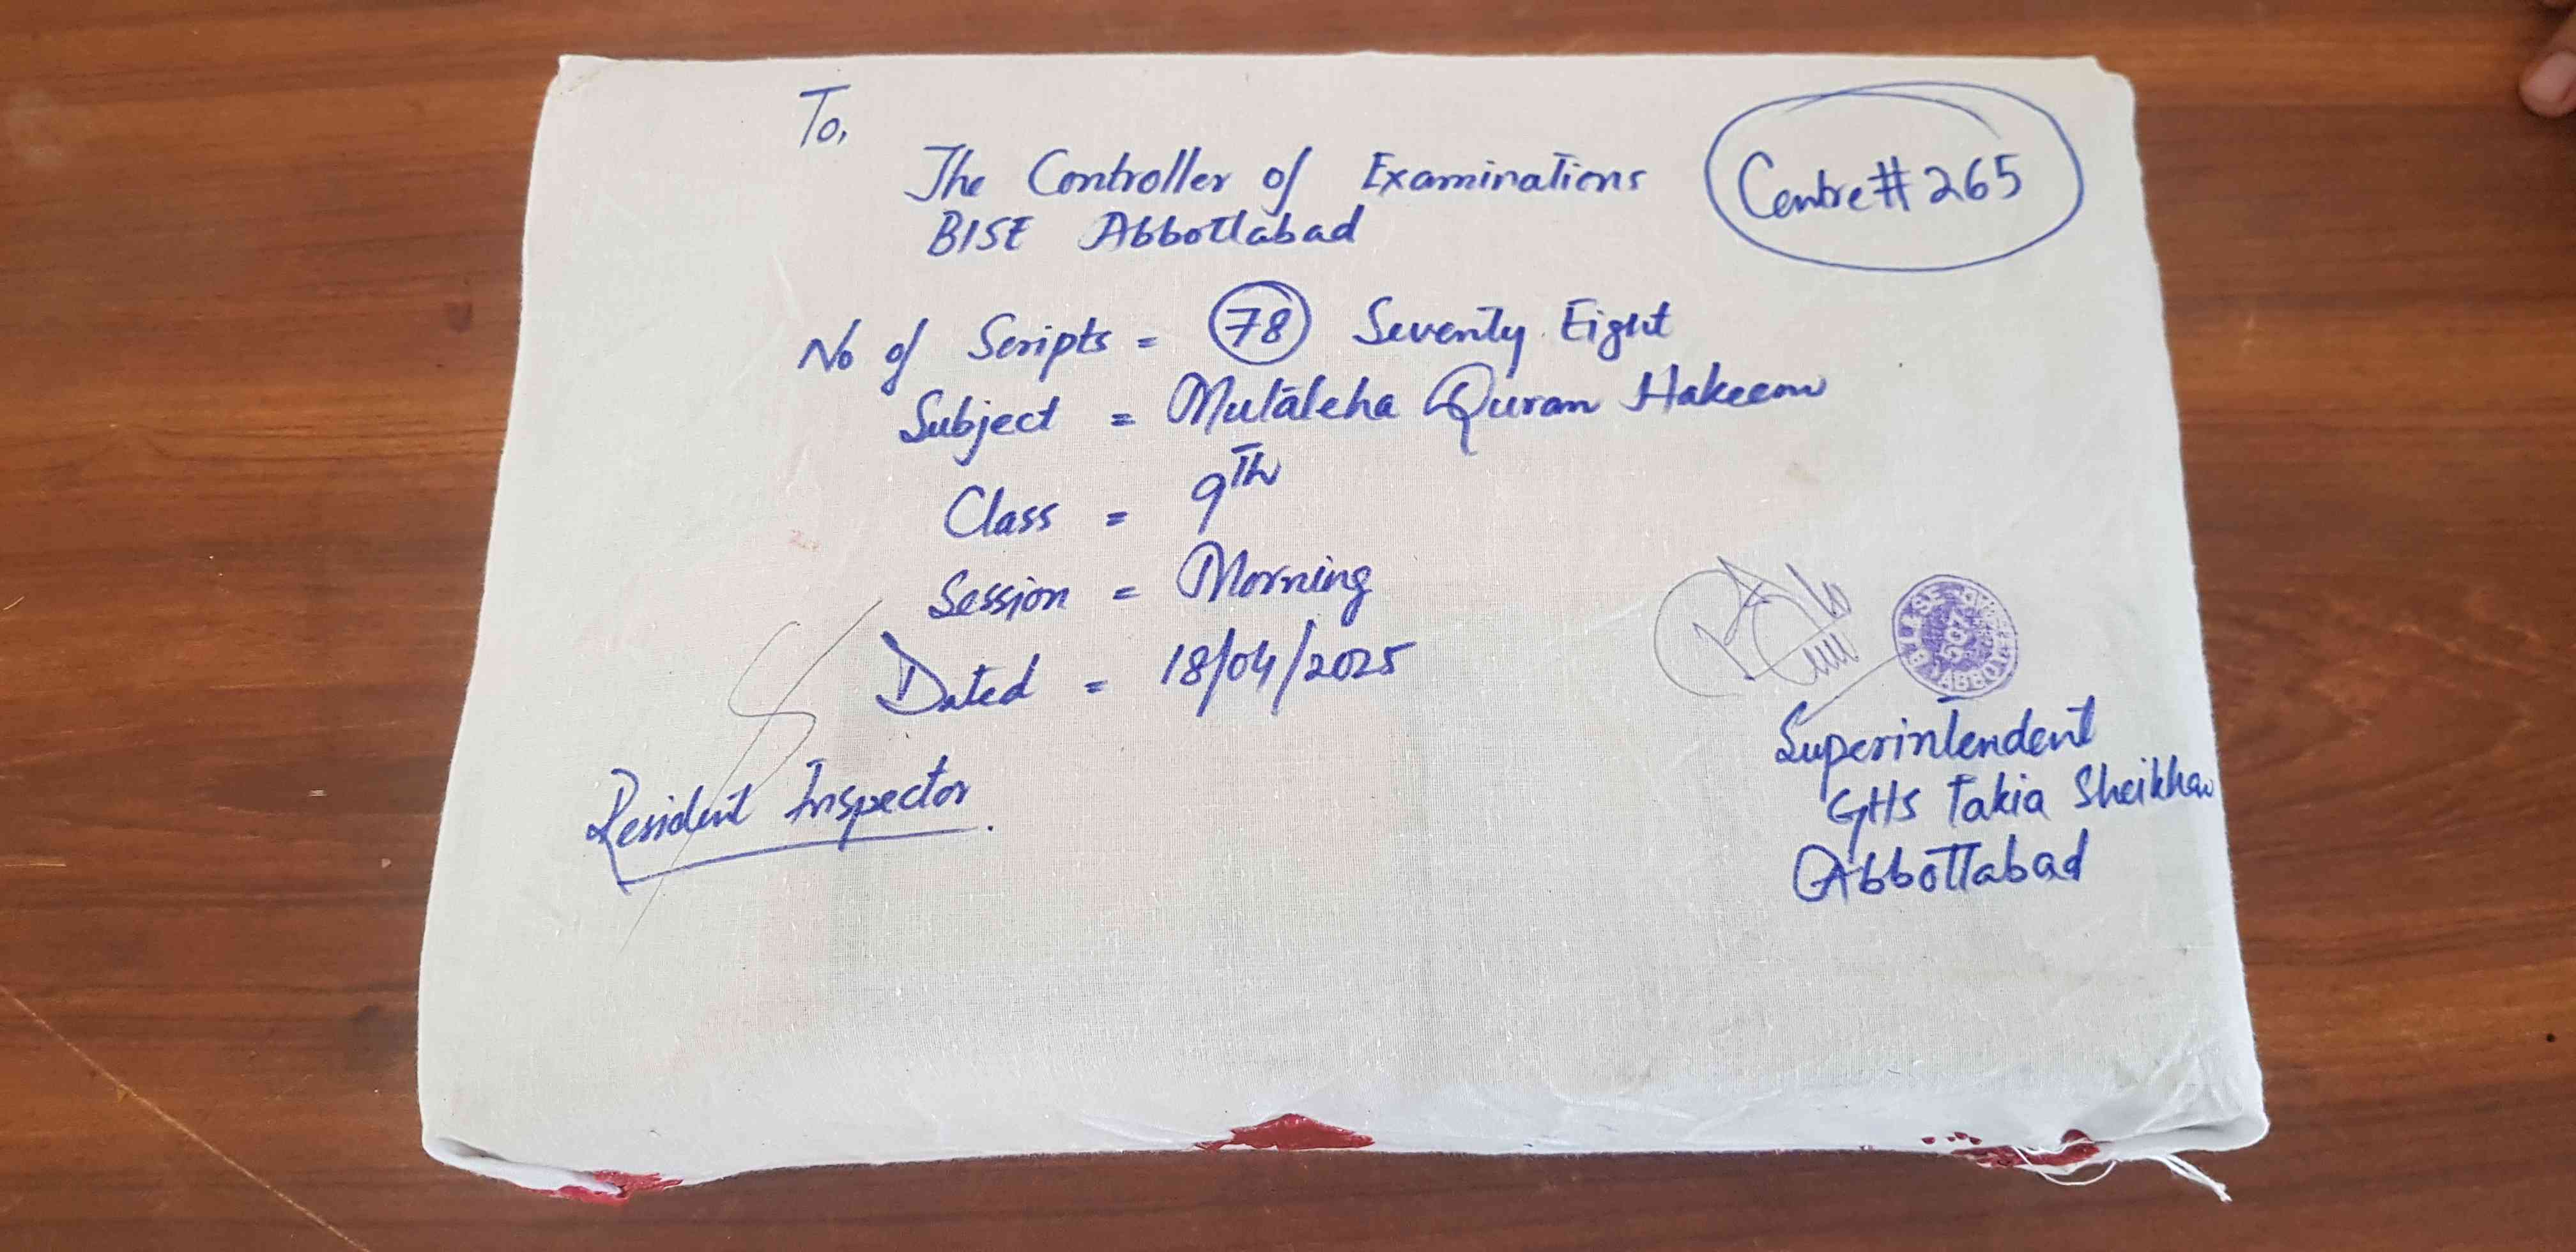 To,
The Controller of Examinations
BISE Abbottabad
Centre # 265
No of Scripts = 78 Seventy Eight
Subject = Mutaleha Quran Hakeem
Class = 9th
Session = Morning
Dated = 18/04/2025
Resident Inspector
Superintendent
GHS Takia Sheikhan
Abbottabad